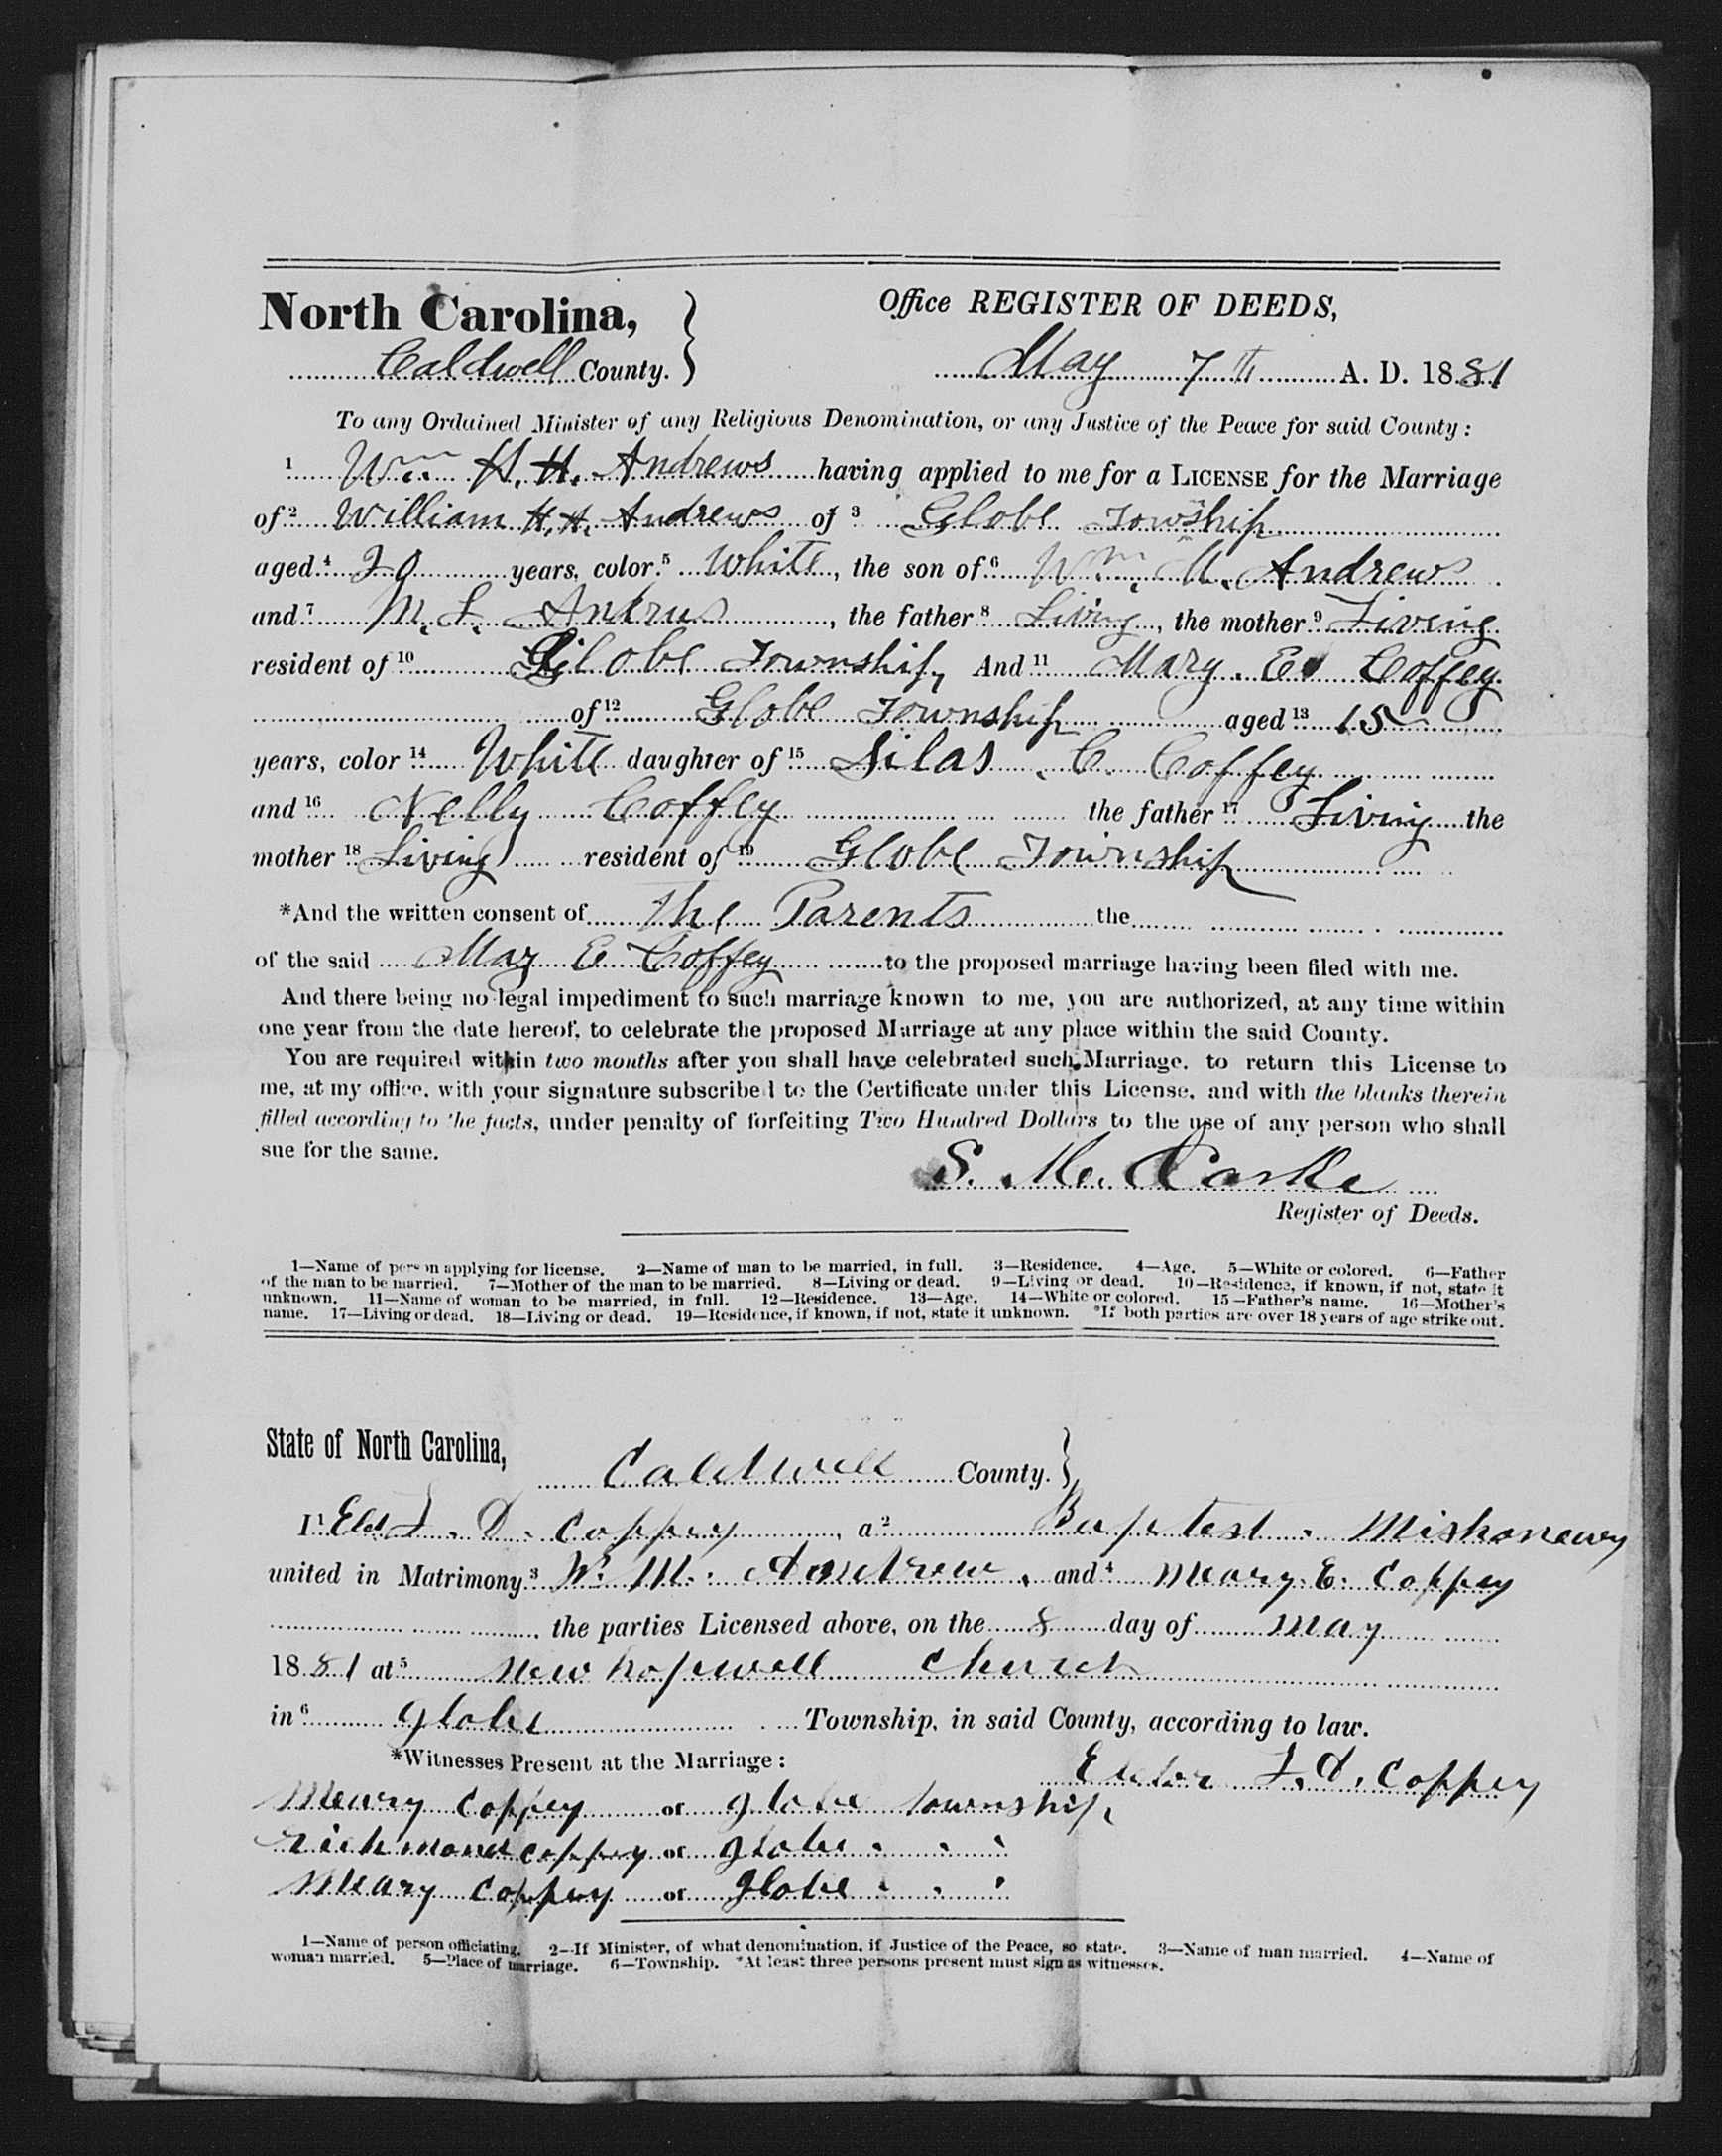 North Carolina,
Caldwell County.
Office REGISTER OF DEEDS,
May 7th A. D. 1881
To any Ordained Minister of any Religious Denomination, or any Justice of the Peace for said County:
1 Wm H. H. Andrews having applied to me for a LICENSE for the Marriage
of 2 William H. H. Andrews of 3 Globe Towship
aged 4 20 years, color 5 White, the son of 6 Wm. M. Andrews
and 7 M. L. Andrus, the father 8 Living, the mother 9 Living
resident of 10 Globe Township, And 11 Mary. E. Coffey
of 12 Globe Township aged 13 15
years, color 14 White daughter of 15 Silas. C. Coffey
and 16 Nelly Coffey the father 17 Living the
mother 18 Living resident of 19 Globe Township
*And the written consent of The Parents the
of the said May E Coffey to the proposed marriage having been filed with me.
And there being no legal impediment to such marriage known to me, you are authorized, at any time within
one year from the date hereof, to celebrate the proposed Marriage at any place within the said County.
You are required within two months after you shall have celebrated such Marriage, to return this License to
me, at my office, with your signature subscribed to the Certificate under this License, and with the blanks therein
filled according to the facts, under penalty of forfeiting Two Hundred Dollars to the use of any person who shall
sue for the same.
S. M.
Register of Deeds.
1—Name of person applying for license. 2—Name of man to be married, in full. 3—Residence. 4—Age. 5—White or colored. 6—Father
of the man to be married. 7—Mother of the man to be married. 8—Living or dead. 9—Living or dead. 10—Residence, if known, if not, state it
unknown. 11—Name of woman to be married, in full. 12—Residence. 13—Age. 14—White or colored. 15—Father's name. 16—Mother's
name. 17—Living or dead. 18—Living or dead. 19—Residence, if known, if not, state it unknown. *If both parties are over 18 years of age strike out.
State of North Carolina,
Caldwell County.
I 1 Eld L. D. Coffey, a 2 Baptest. Mishonewy
united in Matrimony 3 W. M. Andrew, and 4 Meary. E. Coffey
the parties Licensed above, on the 8 day of May
1881 at 5 New hopewell Church
in 6 globe Township, in said County, according to law.
*Witnesses Present at the Marriage:
Elder L. D. Coffey
Meary Coffey of globe township
richmond coffey of globe " "
Meary Coffey of globe " "
1—Name of person officiating. 2—If Minister, of what denomination, if Justice of the Peace, so state. 3—Name of man married. 4—Name of
woman married. 5—Place of marriage. 6—Township. *At least three persons present must sign as witnesses.